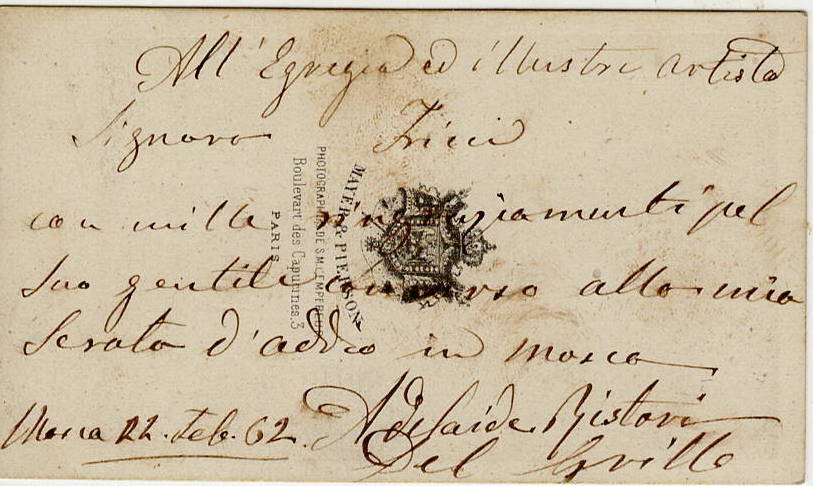 All' Egregia ed illustre artista
Signora Fricci
con mille ringraziamenti pel
suo gentile concorso alla mia
Serata d'addio in Mosca
Adelaide Ristori
Mosca 22. Feb. 62.
Del Grillo
MAYER & PIERSON
PHOTOGRAPHES DE S.M. L'EMPEREUR
Boulevart des Capucines. 3
PARIS